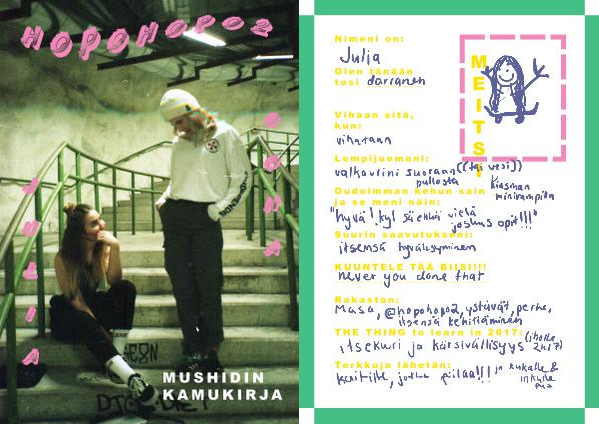 HOPOHOPO2
JULIA
OONA
MUSHIDIN
KAMUKIRJA
Nimeni on:
Julia
Olen tänään
tosi darranen
Vihaan sitä,
kun:
vihataan
Lempijuomani:
valkoviini suoraan ((tai vesi))
pullosta
Oudoimman kehun sain
ja se meni näin:
Kiasman
minirampilla
"hyvä! kyl sä ehkä vielä
joskus opit!!!"
Suurin saavutukseni:
itsensä hyväksyminen
KUUNTELE TÄÄ BIISI!!!!
never you done that
Rakastan:
Masa, @hopohopo2, ystävät, perhe,
itsensä kehittäminen
THE THING to learn in 2017:
itsekuri ja kärsivällisyys
Terkkuja lähetän:
kaikille, jotka
MEITSI